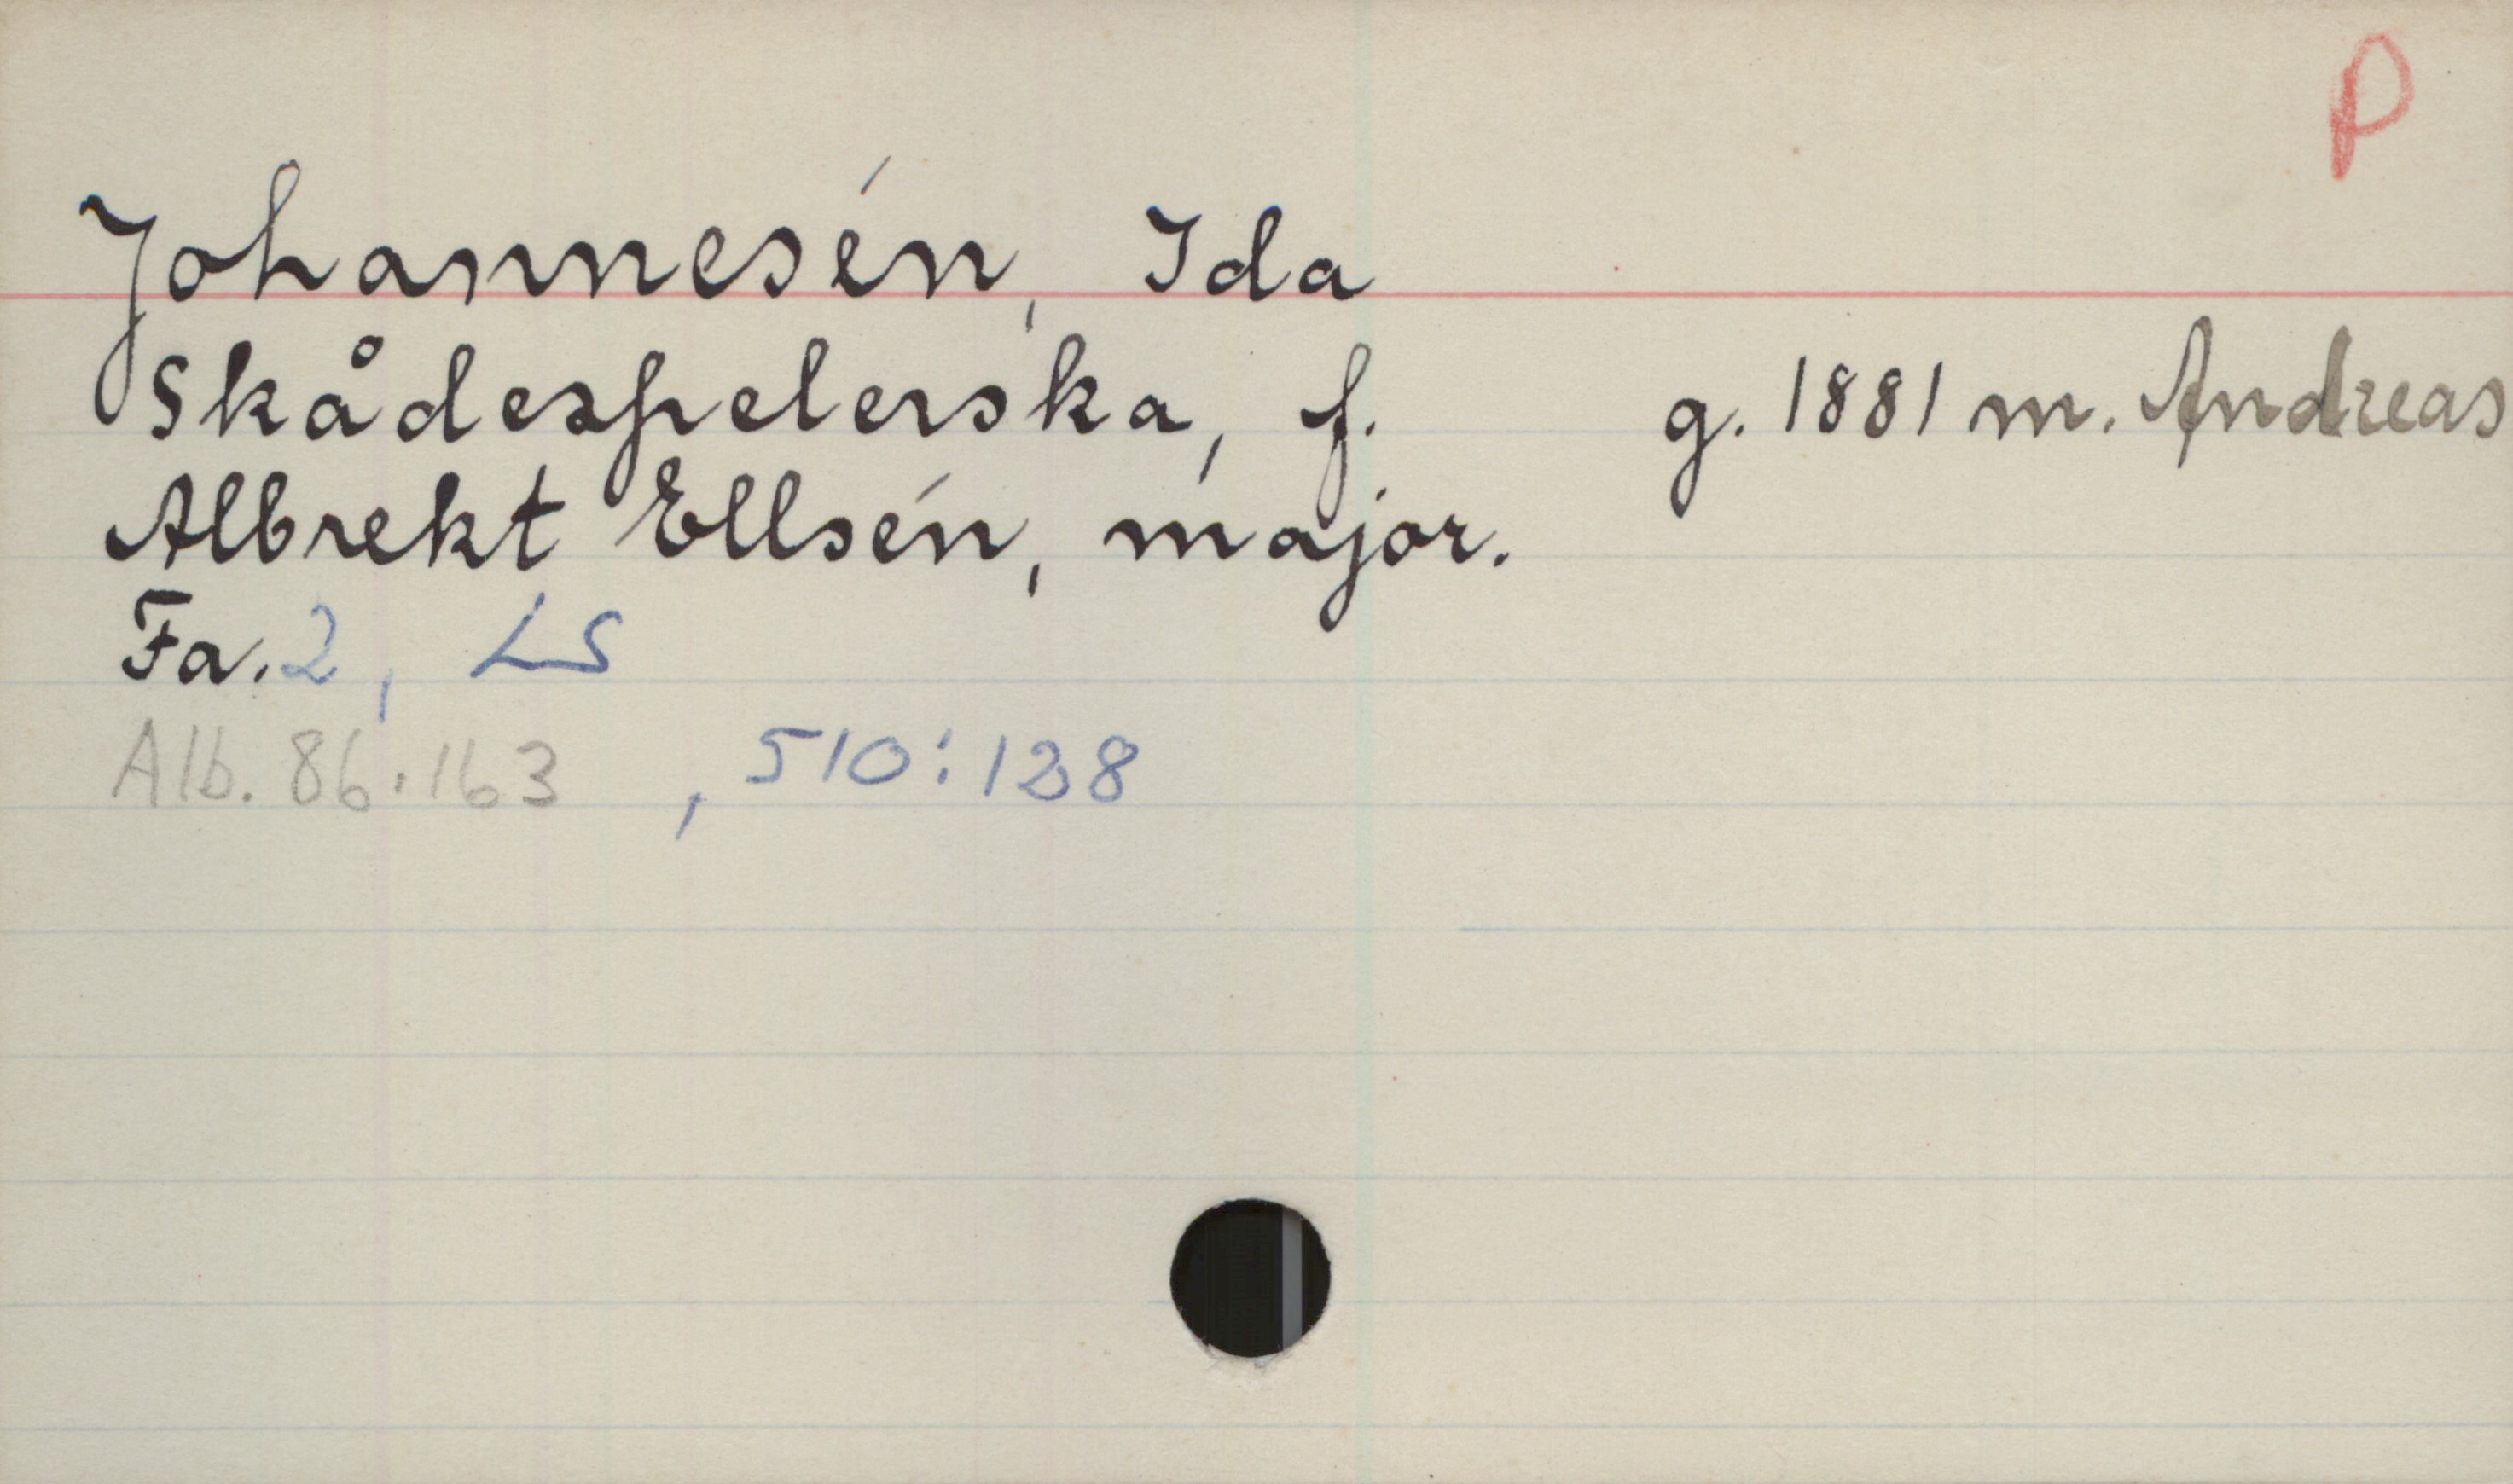 P
Johannesén, Ida
Skådespelerska, f. g. 1881 m. Andreas
Albrekt Ellsén, major.
Fa. 2, LS
Alb. 86:163 , 510:128